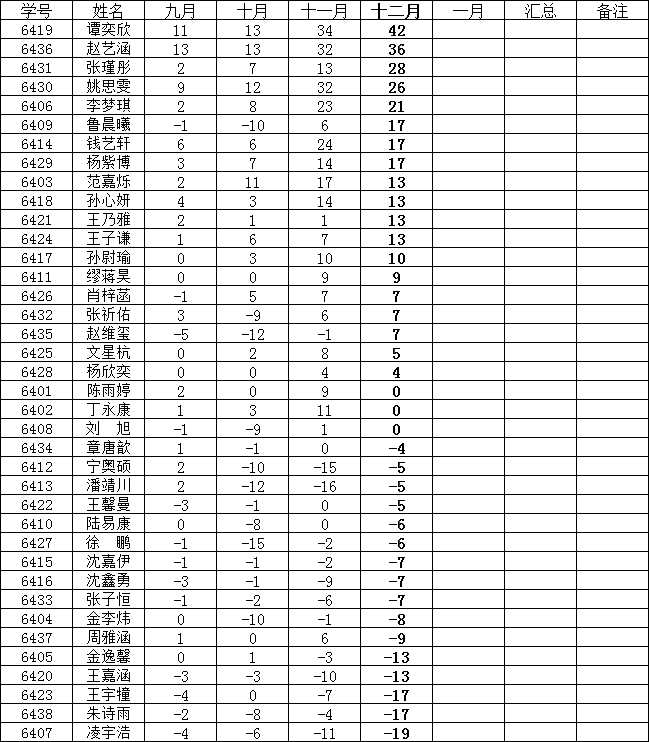 学号 姓名 九月 十月 十一月 十二月 一月 汇总 备注
6419 谭奕欣 11 13 34 42
6436 赵艺涵 13 13 32 36
6431 张瑾彤 2 7 13 28
6430 姚思雯 9 12 32 26
6406 李梦琪 2 8 23 21
6409 鲁晨曦 -1 -10 6 17
6414 钱艺轩 6 6 24 17
6429 杨紫博 3 7 14 17
6403 范嘉烁 2 11 17 13
6418 孙心妍 4 3 14 13
6421 王乃雅 2 1 1 13
6424 王子谦 1 6 7 13
6417 孙尉瑜 0 3 10 10
6411 缪蒋昊 0 0 9 9
6426 肖梓菡 -1 5 7 7
6432 张祈佑 3 -9 6 7
6435 赵维玺 -5 -12 -1 7
6425 文星杭 0 2 8 5
6428 杨欣奕 0 0 4 4
6401 陈雨婷 2 0 9 0
6402 丁永康 1 3 11 0
6408 刘 旭 -1 -9 1 0
6434 章唐歆 1 -1 0 -4
6412 宁奥硕 2 -10 -15 -5
6413 潘靖川 2 -12 -16 -5
6422 王馨曼 -3 -1 0 -5
6410 陆易康 0 -8 0 -6
6427 徐 鹏 -1 -15 -2 -6
6415 沈嘉伊 -1 -1 -2 -7
6416 沈鑫勇 -3 -1 -9 -7
6433 张子恒 -1 -2 -6 -7
6404 金李炜 0 -10 -1 -8
6437 周雅涵 1 0 6 -9
6405 金逸馨 0 1 -3 -13
6420 王嘉涵 -3 -3 -10 -13
6423 王宇犝 -4 0 -7 -17
6438 朱诗雨 -2 -8 -4 -17
6407 凌宇浩 -4 -6 -11 -19